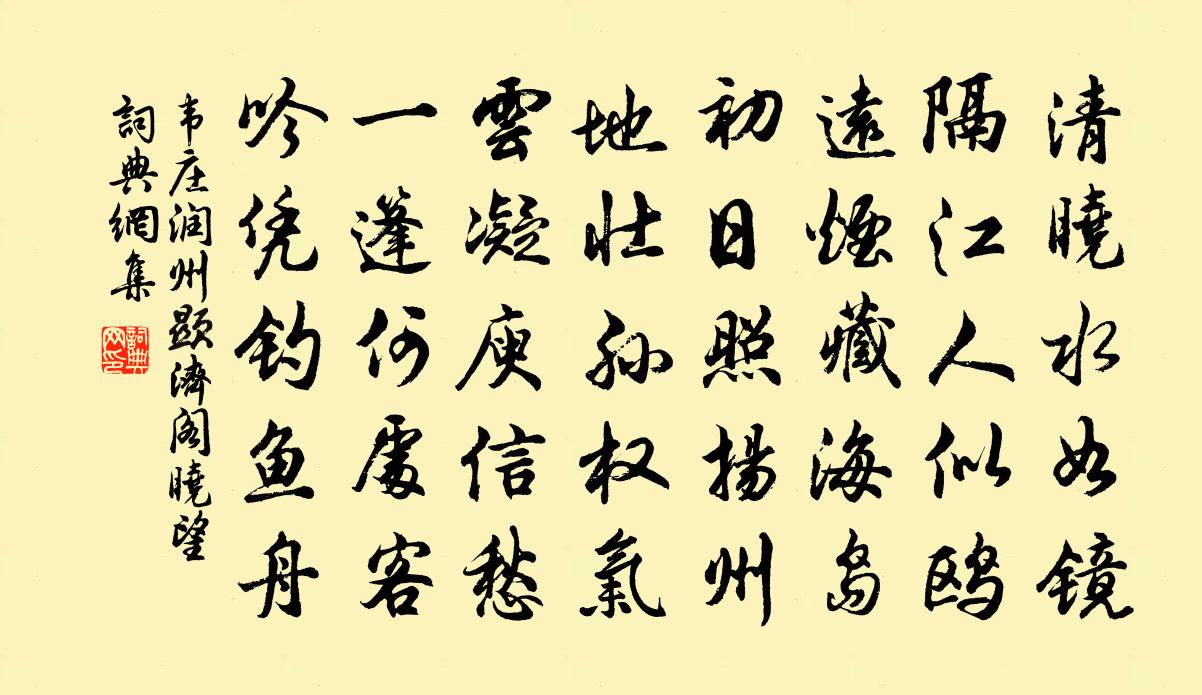 清曉水如镜
隔江人似鸥
遠煙藏海岛
初日照揚州
地壮孙权氣
雲凝庾信愁
一篷何處客
吟凭钓鱼舟
韦庄润州顕濟阁曉望
詞典網集
詞典网印